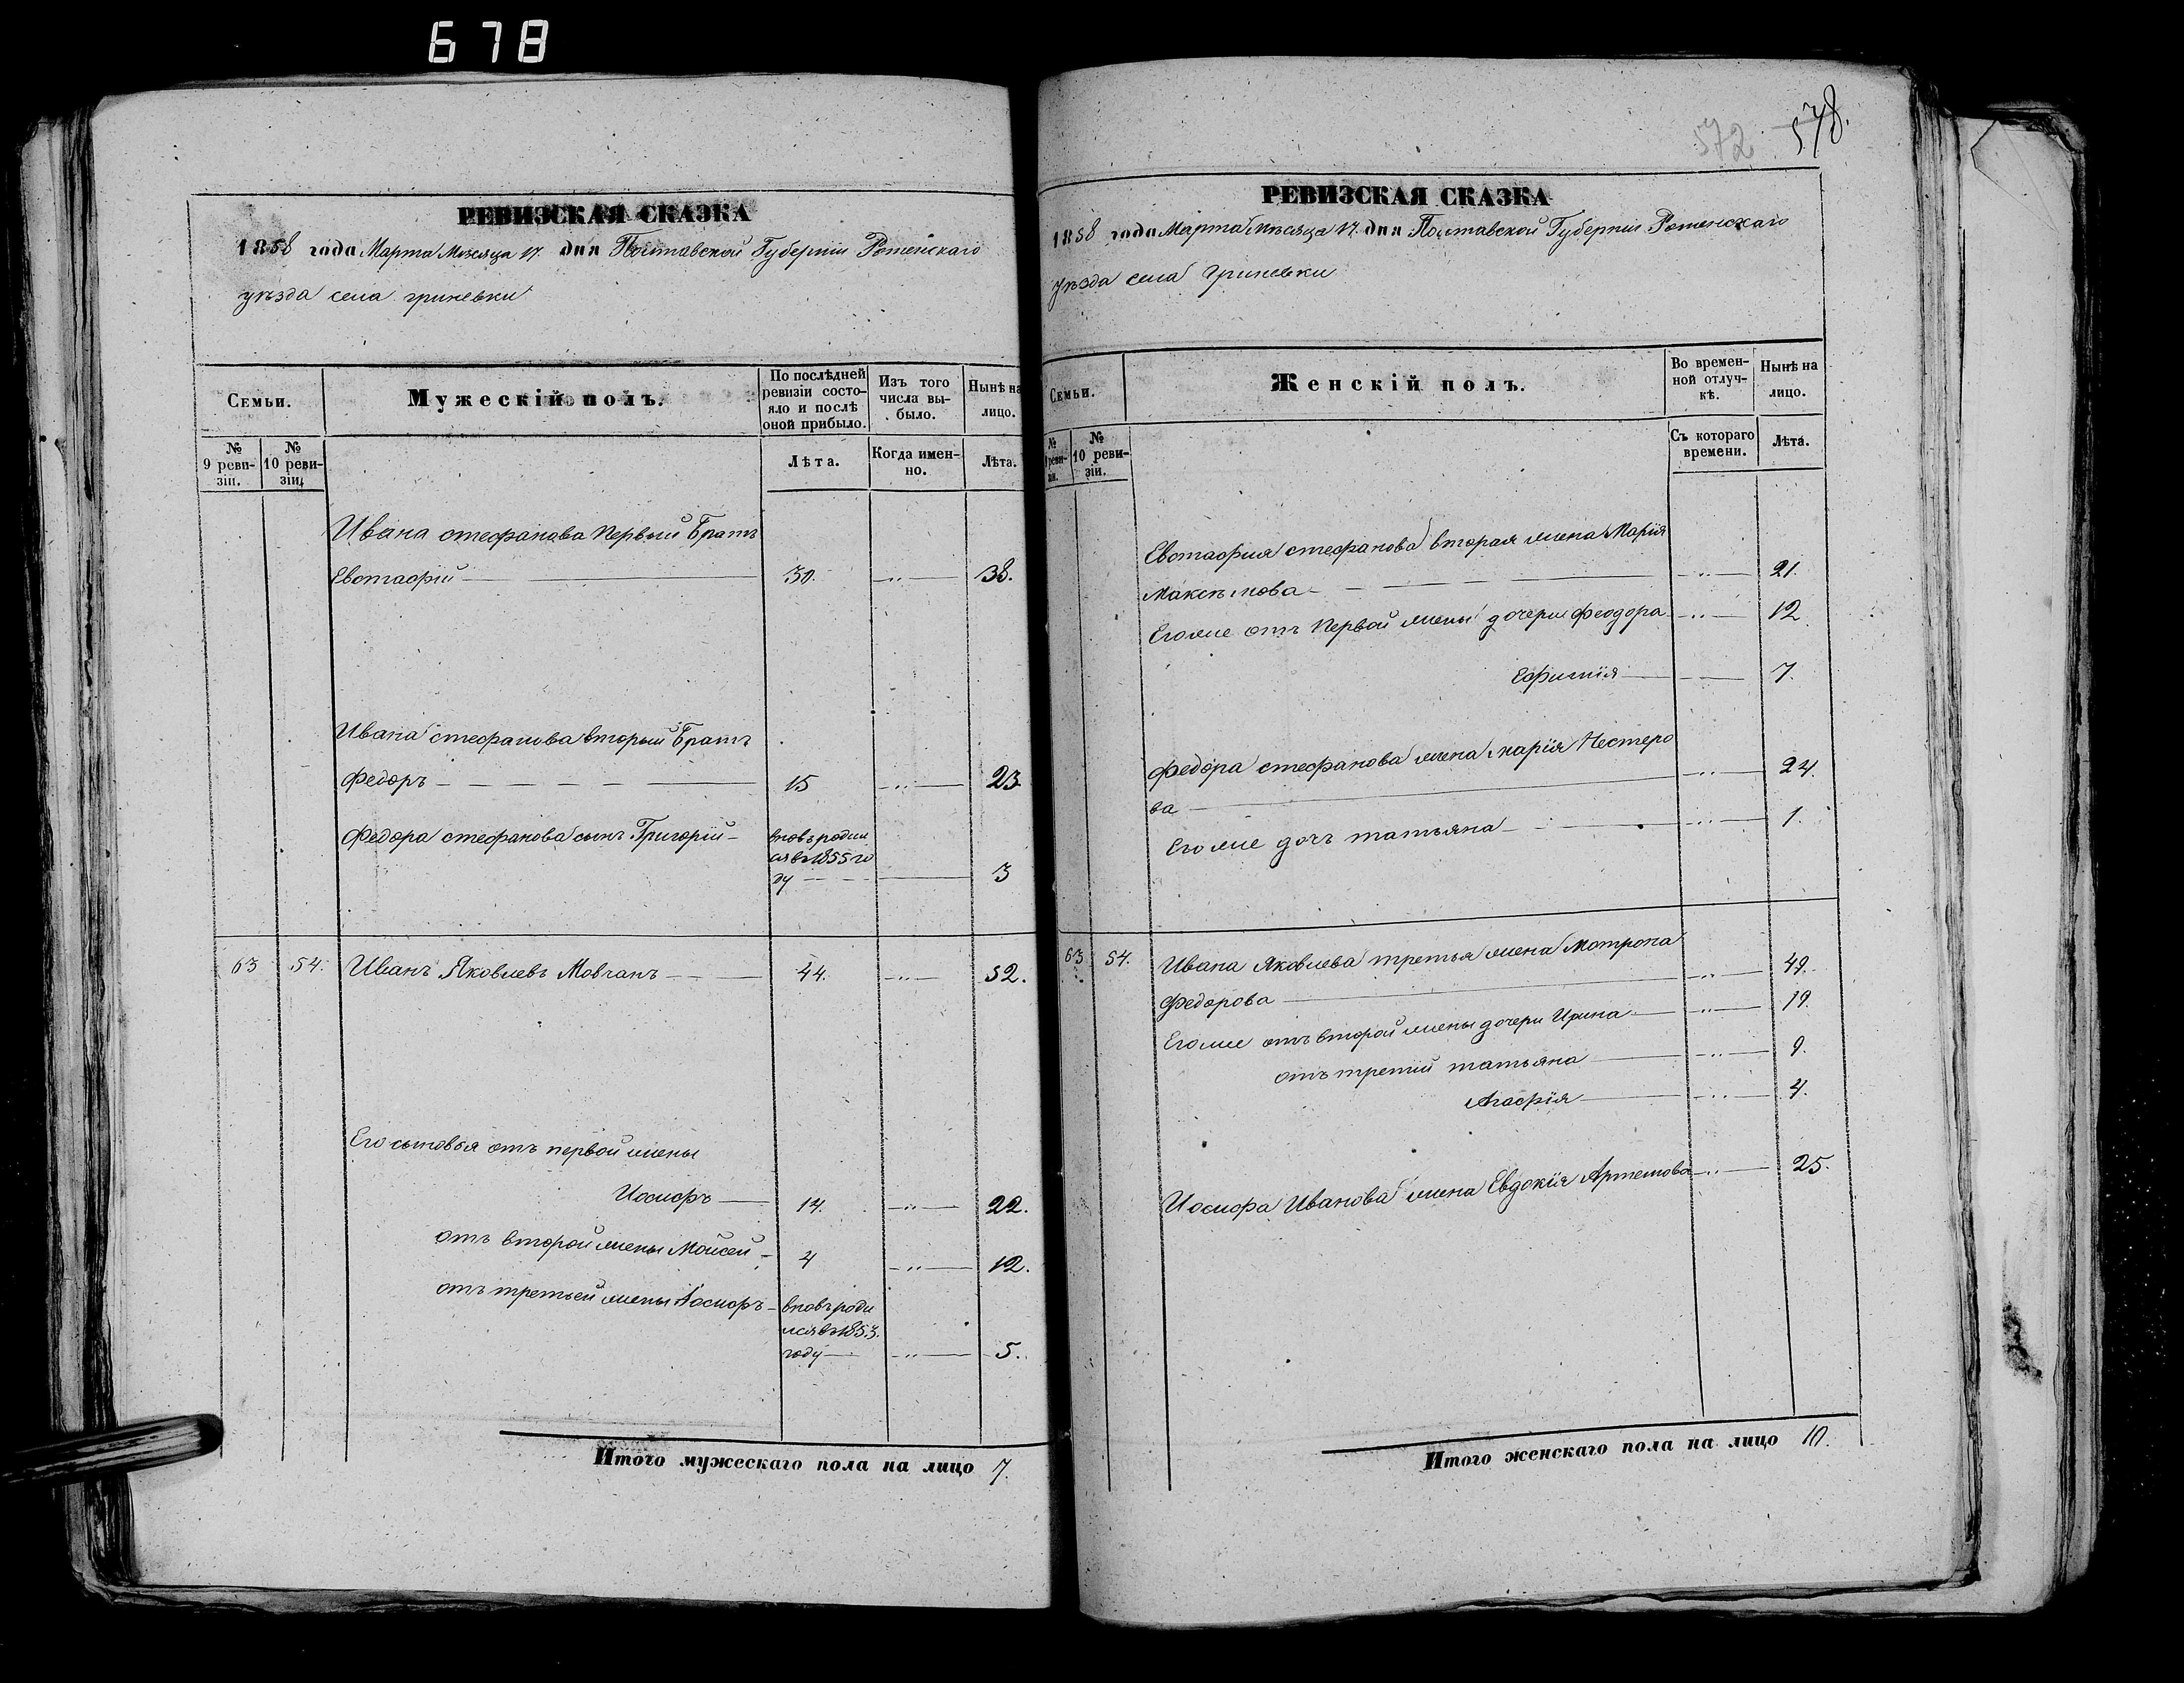 678
РЕВИЗСКАЯ СКАЗКА
1858 года Марта Месяца 17. дня Полтавской Губернiи Роменскаго
уѣзда села гриневки
Семьи.
Мужескiй полъ.
По послѣдней
ревизiи состо-
яло и послѣ
оной прибыло.
Изъ того
числа вы-
было.
Нынѣ на
лицо.
№
9 реви-
зiи.
№
10 реви-
зiи.
Лѣта.
Когда имен-
но.
Лѣта.
Ивана стефанова Первый Братъ
Евстафiй 30. 38.
Ивана стефанова вторый Братъ
Федоръ 15 23
Федора стефанова сынъ Григорiй
вновь родил
ся въ 1855 го
ду 3
63 54. Иванъ Яковлевъ Мовчанъ 44. 52.
Его сыновья отъ первой жены
Иосифъ 14. 22.
отъ второй жены Мойсей 4 12.
отъ третьей жены Иосифъ
вновь роди
лся въ 1853.
году 5.
Итого мужескаго пола на лицо 7.
572 578.
РЕВИЗСКАЯ СКАЗКА
1858 года Марта Месяца 17. дня Полтавской Губернiи Роменскаго
уѣзда села Гриневки
Семьи.
Женскiй полъ.
Во времен-
ной отлуч-
кѣ.
Нынѣ на
лицо.
№
9 реви-
зiи.
№
10 реви-
зiи.
Съ котораго
времени.
Лѣта.
Евстафия стефанова вторая жена Марiя
Максимова 21.
Его же отъ Первой жены дочери Феодора 12
Ефимiя 7.
Федора стефанова жена марiя Нестеро
ва 24.
Его же дочь татьяна 1.
63 54. Ивана Яковлева третья жена Мотрона
Федорова 49.
Его же отъ второй жены дочери Ирина 19.
отъ третий татьяна 9.
Агафiя 4.
Иосифа Иванова жена Евдокiя Артемова 25.
Итого женскаго пола на лицо 10.